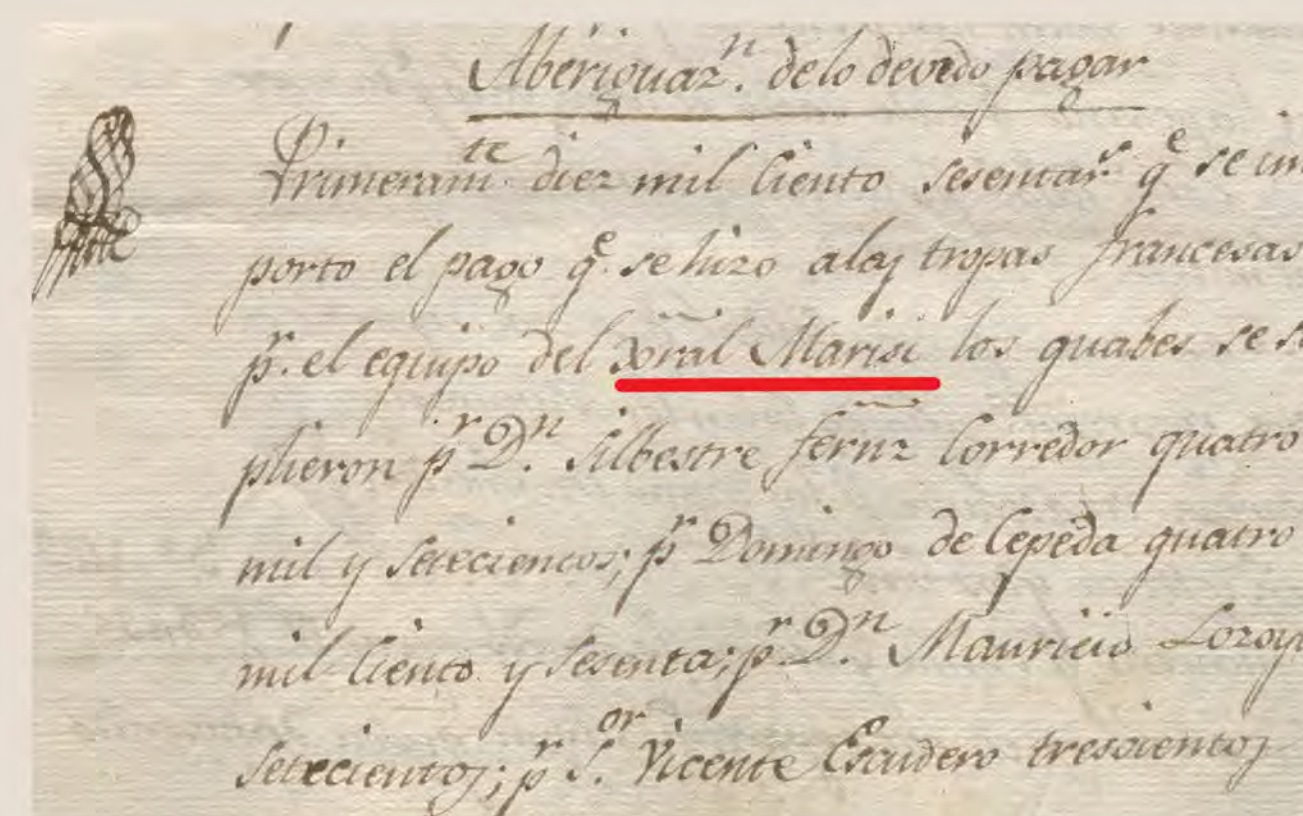 Aberiguaz.n delo devido pagar
Primeram.te diez mil ciento sesenta r.s q.e se im
porto el pago q.e se hizo alas tropas francesas
p.a el equipo del Xrãl Marisi los quales se su
plieron p.r D.n Silbestre fernz Corredor quatro
mil y setecientos; p.r Domingo de Cepeda quatro
mil ciento y sesenta; p.r D.n Mauricio Lozoya
setecientos; p.r S.or Vicente Escudero trescientos